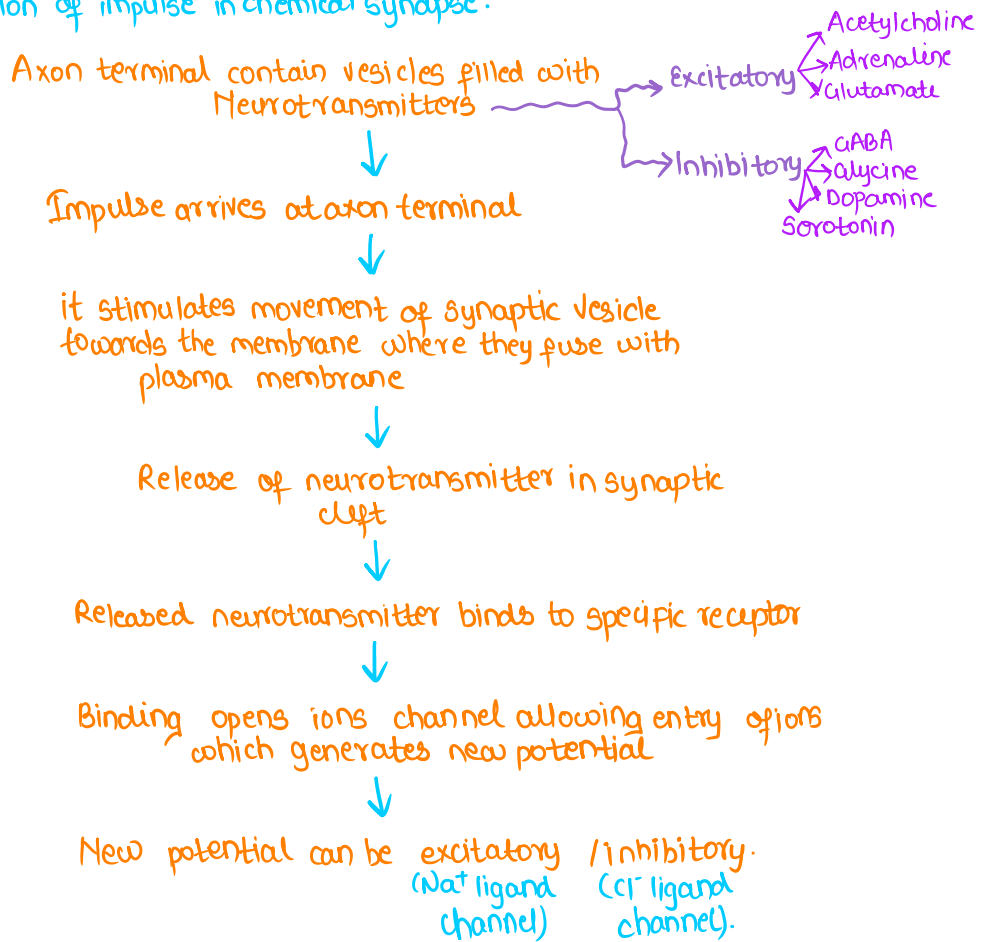 ion of impulse in chemical synapse.
Axon terminal contain vesicles filled with
Neurotransmitters
Excitatory
Acetylcholine
Adrenaline
Glutamate
Inhibitory
GABA
Glycine
Dopamine
Sorotonin
Impulse arrives at axon terminal
it stimulates movement of synaptic vesicle
towards the membrane where they fuse with
plasma membrane
Release of neurotransmitter in synaptic
cleft
Released neurotransmitter binds to specific receptor
Binding opens ions channel allowing entry of ions
which generates new potential
New potential can be excitatory / inhibitory.
(Na⁺ ligand (Cl⁻ ligand
channel) channel).